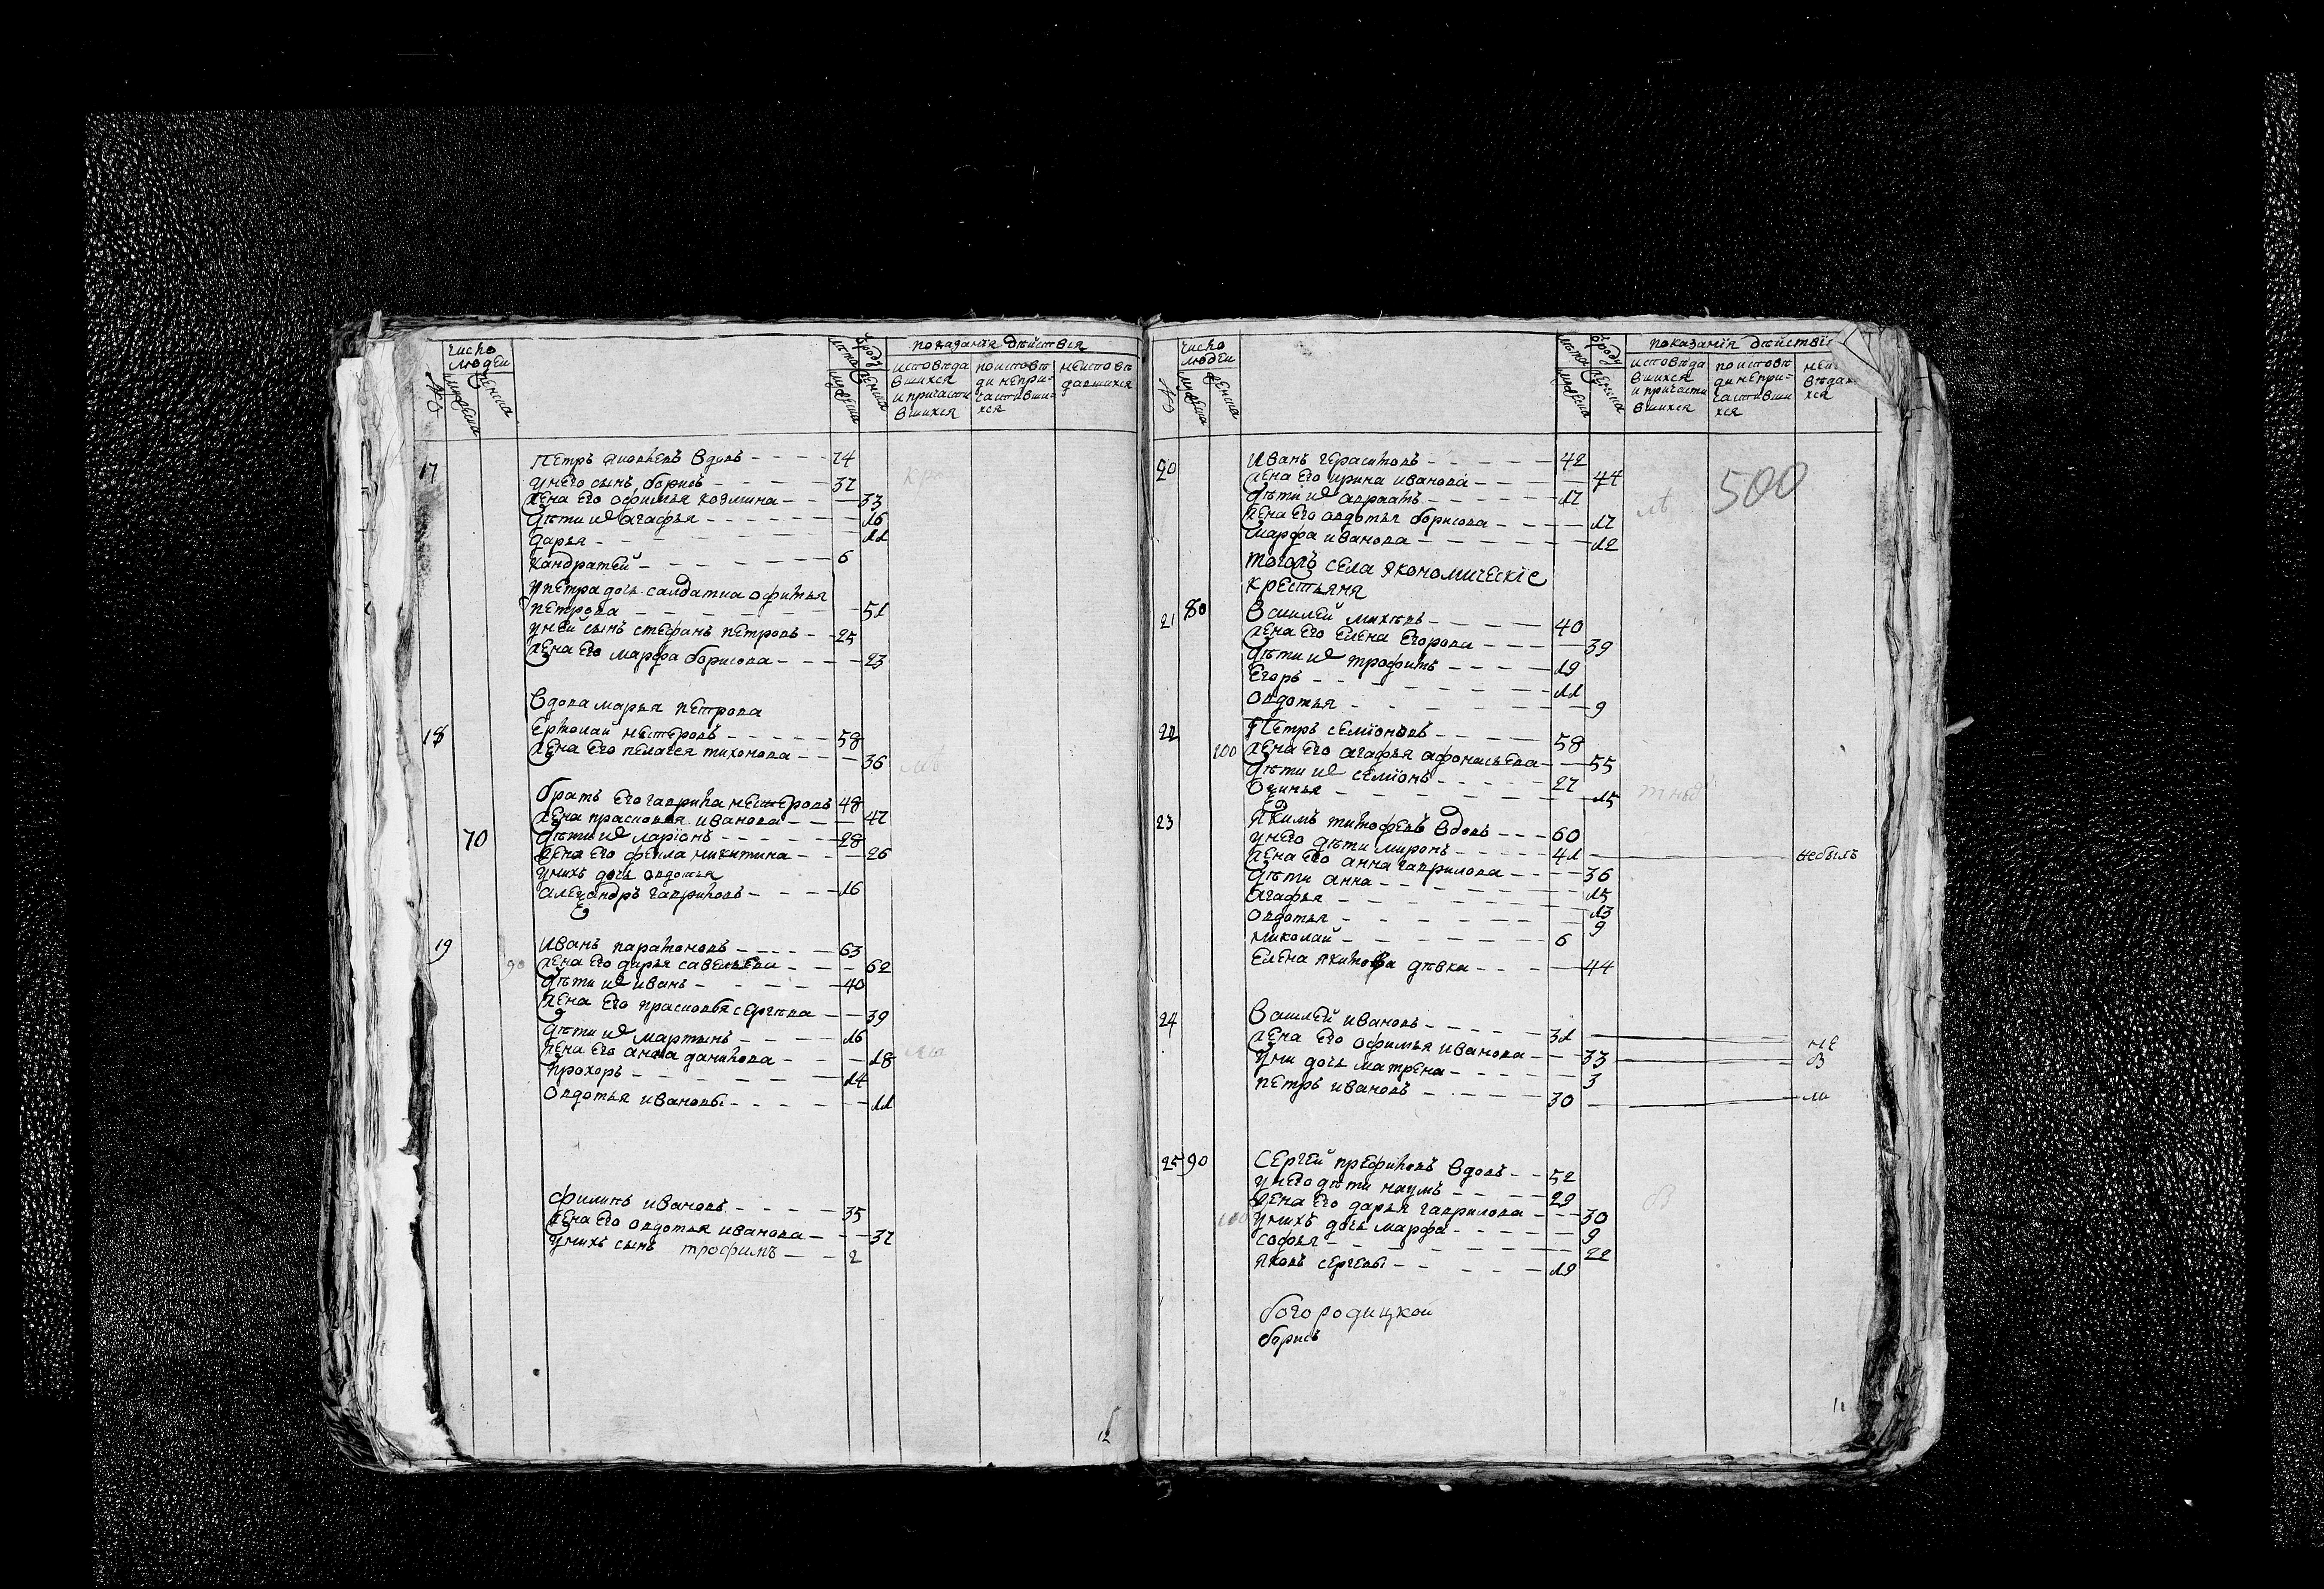 число людеи
№
мужеска
женска
лѣта ѿ роду
мужеска
женска
показания дѣиствия
исповѣда
вшихся
и причасти
вшихся
по исповѣ
ди непри-
частивши-
хся
неисповѣ
давшихся
17 Петръ яковлевъ вдовъ - - - - 74
у него сынъ борисъ - - - - 37
жена его офимья козмина - - - 33
дѣти их агафья - - - - 16
дарья - - - - 11
кандратей - - - - 6
у петра дочь салдатка офимья
петрова - - - - 51
у ней сынъ стефанъ петровъ - - 25
жена его марфа борисова - - - - 23
вдова марья петрова
18 Ермолай нестеровъ - - - - 58
жена его пелагея тихонова - - - 36
братъ его гаврила нестеровъ 48
жена прасковья иванова - - - 47
70 дѣти их ларіонъ - - - - 28
жена его фекла микитина - - - 26
у нихъ дочь овдотья
алеѯандръ гавриловъ - - - - 16
19 Иванъ парамоновъ - - - - 63
90 жена его дарья савельева - - - 62
дѣти их иванъ - - - - 40
жена его прасковья сергѣева - - - 39
дѣти их мартынъ - - - - 16
жена его анна данилова - - - 18
прохоръ - - - - 14
овдотья ивановы - - - - 11
филипъ ивановъ - - - - 35
жена его овдотья иванова - - - 37
у нихъ сынъ трофимъ - - 2
12
число людеи
№
мужеска
женска
лѣта ѿ роду
мужеска
женска
показанія дѣиствіе
исповѣда
вшихся
и причасти
вшихся
по исповѣ
ди непри-
частивши
хся
вѣдав
хся
20 Иванъ герасимовъ - - - - 42
жена его ирина иванова - - - 44
500
дѣти их авраамъ - - - - 17
жена его овдотья борисова - - - - 17
марфа иванова - - - - 12
тогожъ села якономическіе
крестьяня
21 80 Василей михѣевъ - - - - 40
жена его елена егорова - - - 39
дѣти их трофимъ - - - - 19
Егоръ - - - - 11
овдотья - - - - 9
22 Петръ семіоновъ - - - - 58
100 жена его агафья афонасьева - - 55
дѣти их семіонъ - - - - 27
- - - - 15
23 Якимъ тимофеевъ вдовъ - - - 60
у него дѣти миронъ - - - - 41 небылъ
жена его анна гаврилова - - - - 36
дѣти анна - - - - 15
агафья - - - - 13
овдотья - - - - 9
миколай - - - - 6
елена якимова дѣвка - - - - 44
24 Василей ивановъ - - - - 31 не
жена его офимья иванова - - - 33 б
у ни дочь матрена - - - - 3
петръ ивановъ - - - - 30 ли
25 90 Сергей префиловъ вдовъ - - 52
у него дѣти наумъ - - - - 29
жена его дарья гаврилова - - - 30
100 у нихъ дочь марфа - - - - 9
софья - - - - 22
яковъ сергевы - - - - 19
богородицкой
борисъ
11